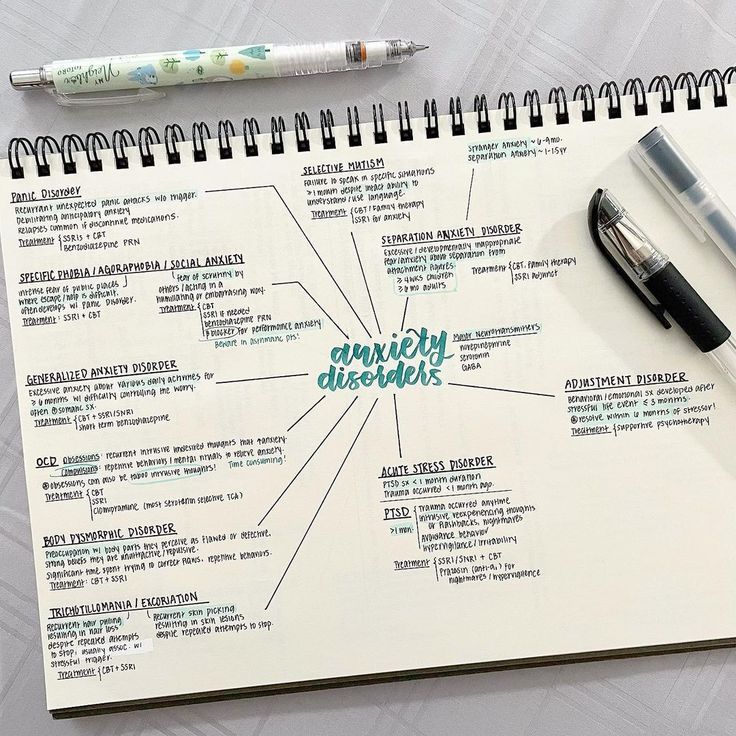 MY
Neighbor
TOTORO
Panic Disorder
Recurrant unexpected panic attacks w/o trigger.
Debilitating anticipatory anxiety
Relapses common if discontinue medications.
Treatment { SSRIs + CBT
Benzodiazepine PRN
SPECIFIC PHOBIA / AGORAPHOBIA / SOCIAL ANXIETY
intense fear of public places
where escape/help is difficult.
often develops w/ Panic Disorder.
Treatment: SSRI + CBT
fear of scrutiny by
others/acting in a
humiliating or embarrasing way.
Treatment { CBT
SSRI if needed
benzodiazepine PRN
β blocker for performance anxiety
Beware in asthmatic pts!
GENERALIZED ANXIETY DISORDER
Excessive anxiety about various daily activities for
≥ 6 months w/ difficulty controlling the worry.
often ⊕ somatic sx.
Treatment { CBT + SSRI/SNRI
short term benzodiazepine
OCD Obsessions: recurrent intrusive undesired thoughts that ↑anxiety.
Compulsions: repetitive behaviors/mental rituals to relieve anxiety.
⊛ obsessions can also be taboo intrusive thoughts! Time consuming!
Treatment { CBT
SSRI
Clomipramine (most serotonin selective TCA)
BODY DYSMORPHIC DISORDER
Preoccupation w/ body parts they perceive as flawed or defective.
strong beliefs they are unattractive/repulsive.
significant time spent trying to correct flaws, repetitive behaviors.
Treatment: CBT + SSRI
TRICHOTILLOMANIA / EXCORIATION
Recurrent hair pulling
resulting in hair loss
despite repeated attempts
to stop, usually assoc. w/
stressful trigger.
Recurrent skin picking
resulting in skin lesions
despite repeated attempts to stop.
Treatment { CBT + SSRI
SELECTIVE MUTISM
Failure to speak in specific situations
≥ 1 month despite intact ability to
understand/use language.
Treatment { CBT/Family therapy
SSRI for anxiety
Stranger Anxiety ~ 6-9mo.
Separation Anxiety ~ 1-1.5yr
SEPARATION ANXIETY DISORDER
Excessive/developmentally inappropriate
fear/anxiety about separation from
attachment figures
≥ 4 wks children
≥ 6 mo adults
Treatment { CBT, Family therapy
SSRI adjunct
anxiety
disorders
Major Neurotransmitters
norepinephrine
serotonin
GABA
ADJUSTMENT DISORDER
Behavioral/emotional sx developed after
stressful life event ≤ 3 months.
⊛ resolve within 6 months of stressor!
Treatment { supportive psychotherapy
ACUTE STRESS DISORDER
PTSD sx < 1 month duration
Trauma occurred < 1 month ago.
PTSD
>1 mon.
Trauma occurred anytime
intrusive reexperiencing thoughts
or flashbacks, nightmares
Avoidance behavior
Hypervigilance/irritability
Treatment { SSRI/SNRI + CBT
Prazosin (anti-α₁) for
nightmares/hypervigilance